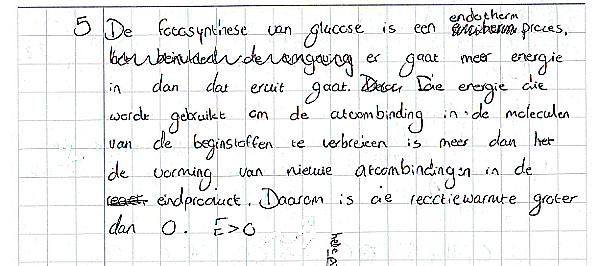 5 De fotosynthese van glucose is een endotherm proces,
er gaat meer energie
in dan dat eruit gaat. Die energie die
wordt gebruikt om de atoombinding in de moleculen
van de beginstoffen te verbreken is meer dan het
de vorming van nieuwe atoombindingen in de
eindproduct. Daarom is de reactiewarmte groter
dan 0. E>0